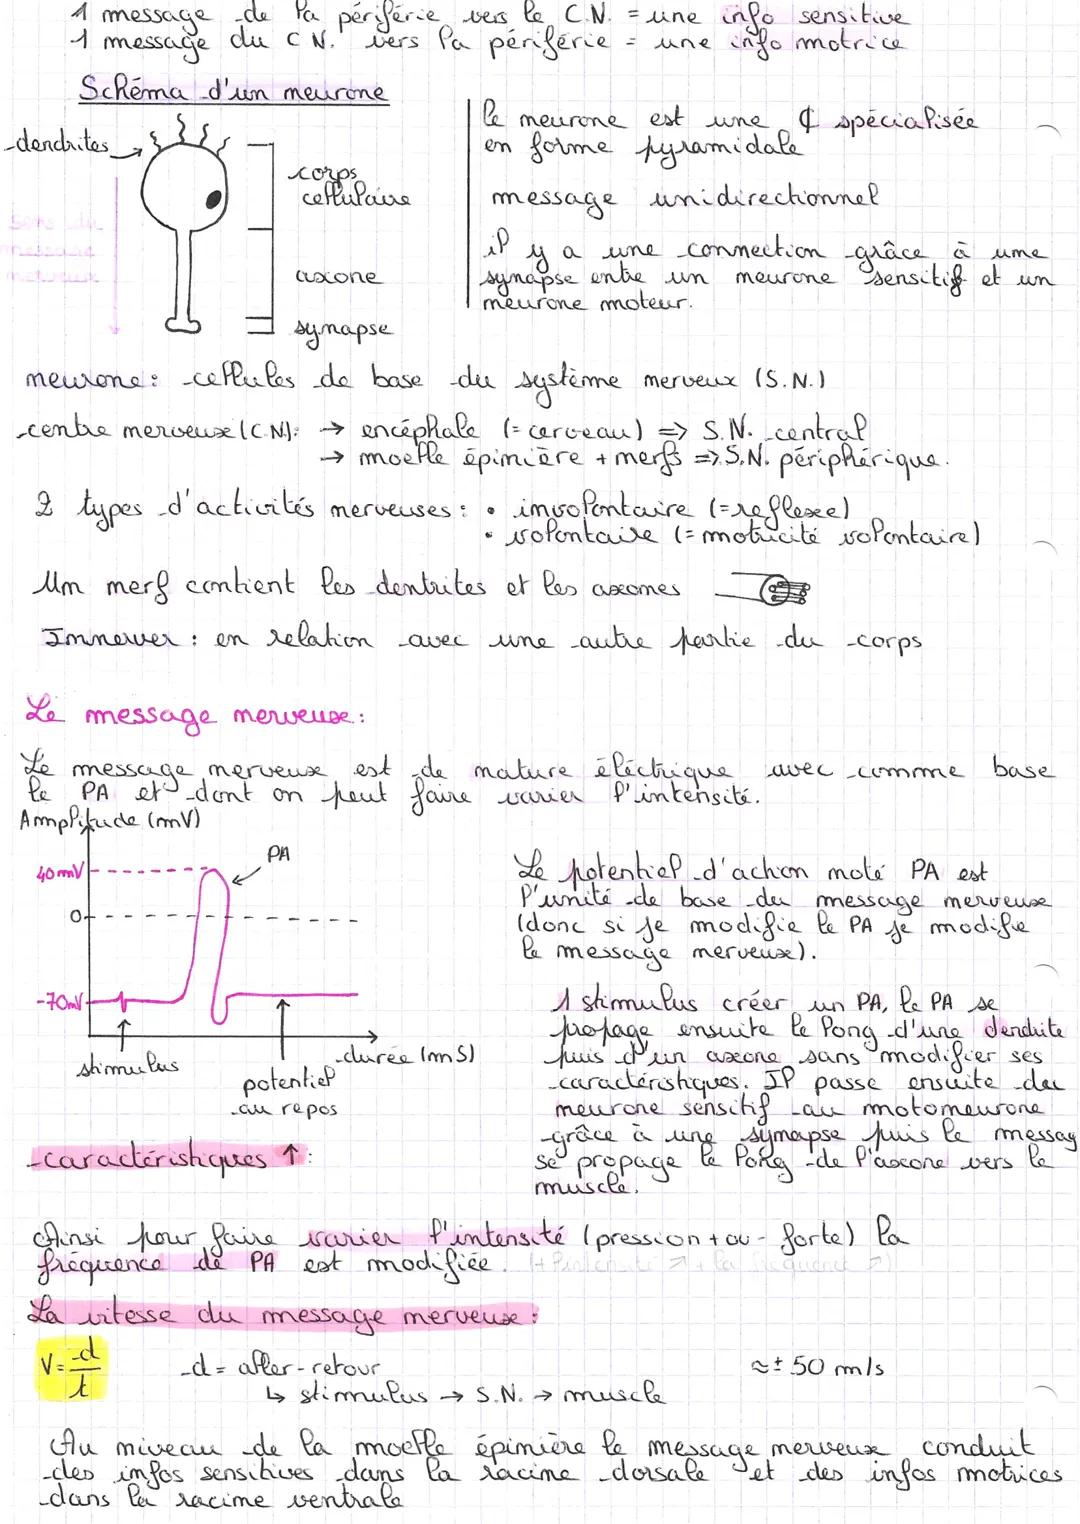 1 message de la périférie vers le C.N. = une info sensitive
1 message du C N. vers la périférie = une info motrice
Schéma d'un neurone
dendrites
corps
cellulaire
sens du
message
nerveux
axone
synapse
le neurone est une ¢ spécialisée
en forme pyramidale
message unidirectionnel
il y a une connection grâce à une
synapse entre un neurone sensitif et un
neurone moteur.
neurone: cellules de base du système nerveux (S.N.)
centre nerveux (C.N): → encéphale (= cerveau) => S.N. central
→ moelle épinière + nerfs => S.N. périphérique.
2 types d'activités nerveuses: • involontaire (=reflexe)
• volontaire (= motricité volontaire)
Un nerf contient les dentrites et les axones
Innerver : en relation avec une autre partie du corps
Le message nerveux:
Le message nerveux est de nature éléctrique avec comme base
le PA et dont on peut faire varier l'intensité.
Amplitude (mV)
PA
40mV
0
-70mV
stimulus
potentiel
au repos
durée (mS)
Le potentiel d'action noté PA est
l'unité de base du message nerveux
(donc si je modifie le PA je modifie
le message nerveux).
1 stimulus créer un PA, le PA se
propage ensuite le long d'une dendrite
puis d'un axone sans modifier ses
caractéristiques. Il passe ensuite du
neurone sensitif au motoneurone
grâce à une synapse puis le messag
se propage le long de l'axone vers le
muscle.
caractéristiques ↑:
Ainsi pour faire varier l'intensité (pression + ou - forte) la
fréquence de PA est modifiée. (+ l'intensité ↗ + la fréquence ↗)
La vitesse du message nerveux:
V = d/t
d = aller-retour
↳ stimulus → S.N. → muscle
≈ ± 50 m/s
Au niveau de la moelle épinière le message nerveux conduit
des infos sensitives dans la racine dorsale et des infos motrices
dans la racine ventrale